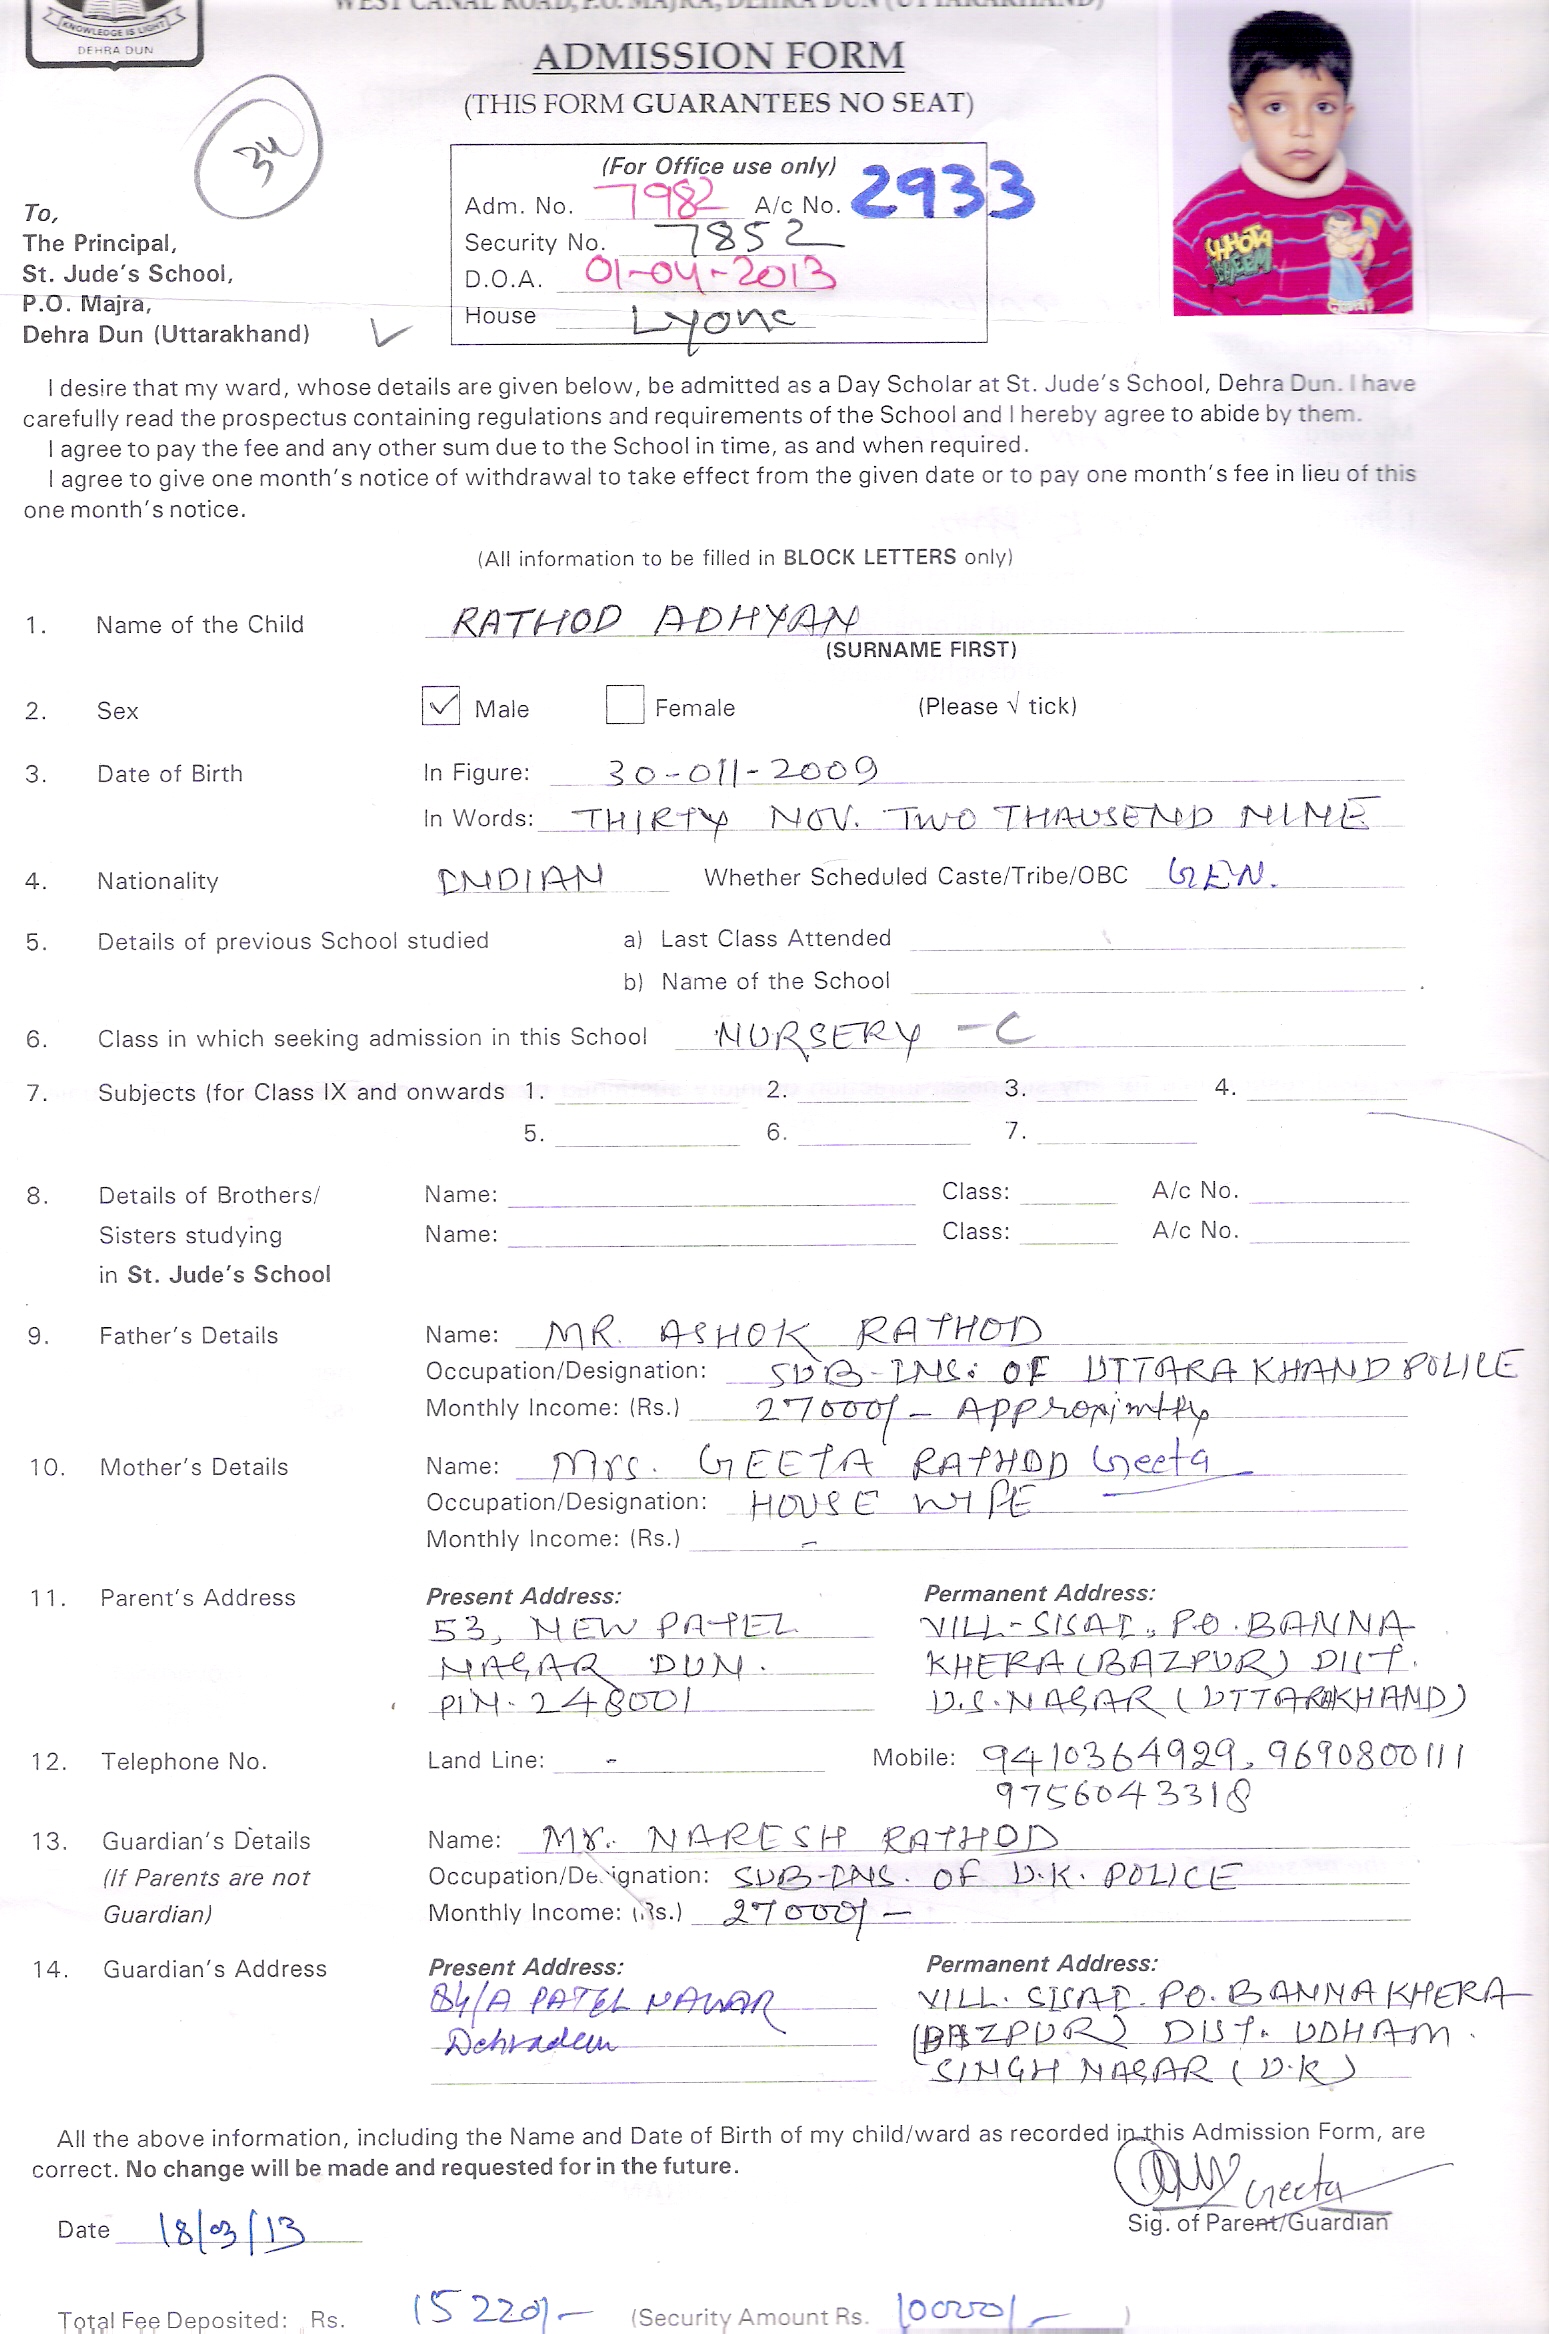 WEST CANAL ROAD, P.O. MAJRA, DEHRA DUN (UTTARAKHAND)
KNOWLEDGE IS LIGHT
DEHRA DUN
ADMISSION FORM
(THIS FORM GUARANTEES NO SEAT)
34
(For Office use only)
Adm. No. 7982 A/c No. 2933
Security No. 7852
D.O.A. 01-04-2013
House Lyons
CHHOTA BHEEM
To,
The Principal,
St. Jude's School,
P.O. Majra,
Dehra Dun (Uttarakhand)
I desire that my ward, whose details are given below, be admitted as a Day Scholar at St. Jude's School, Dehra Dun. I have
carefully read the prospectus containing regulations and requirements of the School and I hereby agree to abide by them.
I agree to pay the fee and any other sum due to the School in time, as and when required.
I agree to give one month's notice of withdrawal to take effect from the given date or to pay one month's fee in lieu of this
one month's notice.
(All information to be filled in BLOCK LETTERS only)
1. Name of the Child RATHOD ADHYAN
(SURNAME FIRST)
2. Sex ✓ Male Female (Please √ tick)
3. Date of Birth In Figure: 30-011-2009
In Words: THIRTY NOV. TWO THAUSEND NINE
4. Nationality INDIAN Whether Scheduled Caste/Tribe/OBC GEN.
5. Details of previous School studied a) Last Class Attended
b) Name of the School
6. Class in which seeking admission in this School NURSERY - C
7. Subjects (for Class IX and onwards 1. 2. 3. 4.
5. 6. 7.
8. Details of Brothers/ Name: Class: A/c No.
Sisters studying Name: Class: A/c No.
in St. Jude's School
9. Father's Details Name: MR. ASHOK RATHOD
Occupation/Designation: SUB-INS: OF UTTARAKHAND POLICE
Monthly Income: (Rs.) 27000/- Approximtly
10. Mother's Details Name: Mrs. GEETA RATHOD Geeta
Occupation/Designation: HOUSE WIFE
Monthly Income: (Rs.) -
11. Parent's Address Present Address: Permanent Address:
53, NEW PATEL VILL-SISAI, P.O. BANNA
NAGAR DUN. KHERA (BAZPUR) DIST.
PIN-248001 U.S. NAGAR (UTTARAKHAND)
12. Telephone No. Land Line: - Mobile: 9410364929, 9690800111
9756043318
13. Guardian's Details Name: Mr. NARESH RATHOD
(If Parents are not Occupation/Designation: SUB-INS. OF U.K. POLICE
Guardian) Monthly Income: (Rs.) 27000/-
14. Guardian's Address Present Address: Permanent Address:
84/A PATEL NAGAR VILL. SISAI. PO. BANNAKHERA
Dehradun (BAZPUR) DIST. UDHAM
SINGH NAGAR (U.K)
All the above information, including the Name and Date of Birth of my child/ward as recorded in this Admission Form, are
correct. No change will be made and requested for in the future.
Geeta
Date 18/03/13 Sig. of Parent/Guardian
Total Fee Deposited: Rs. 15220/- (Security Amount Rs. 10000/- )